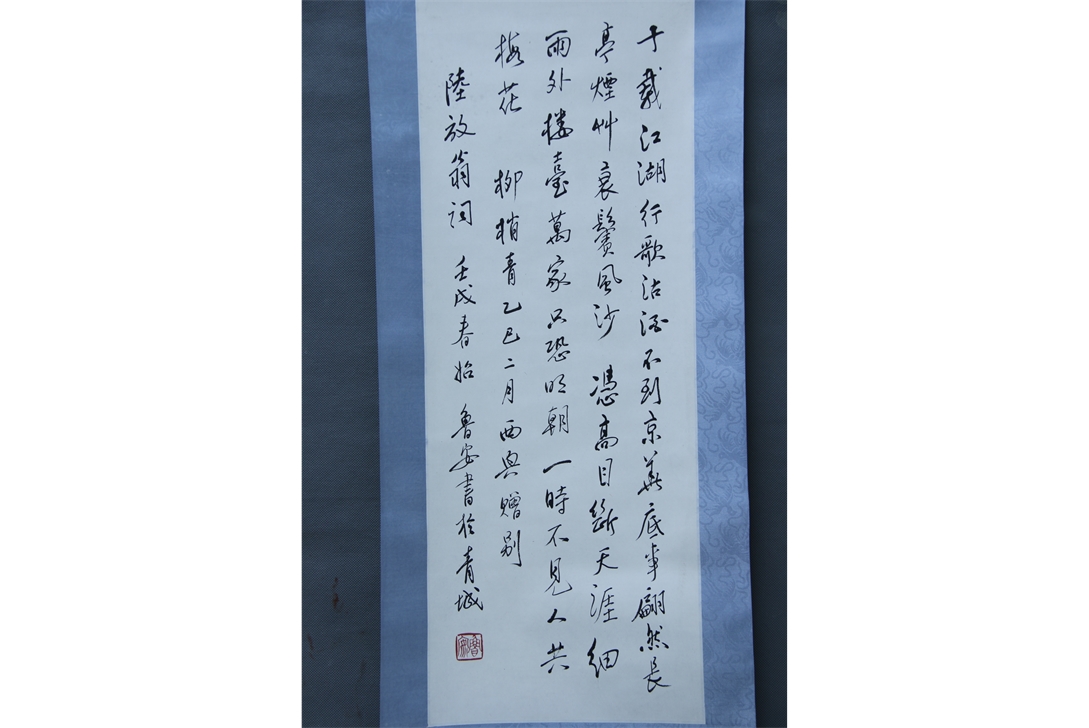 千載江湖行歌沽酒不到京華底事翩然長
亭煙艸衰鬢風沙 憑高目斷天涯細
雨外楼臺萬家只恐明朝一時不見人共
梅花 柳梢青乙巳二月西興贈别
陸放翁詞 壬戌春始 魯安書於青城